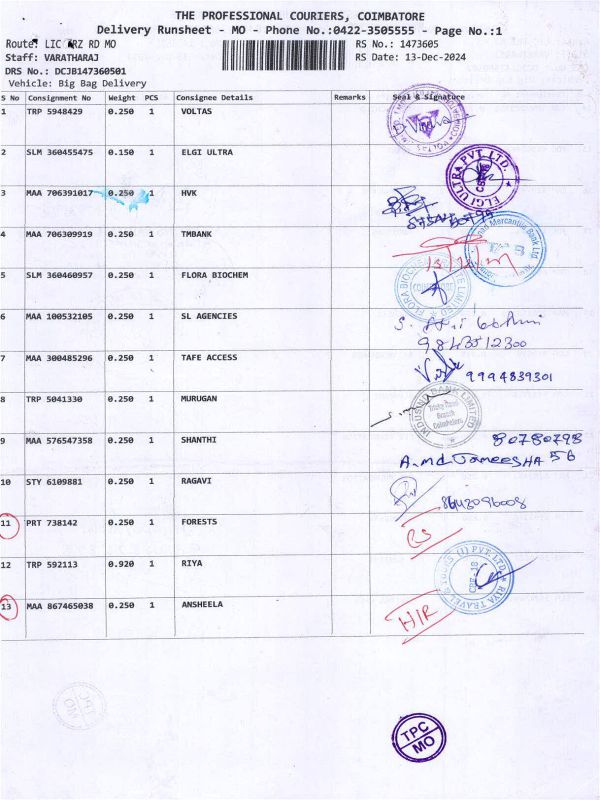 THE PROFESSIONAL COURIERS, COIMBATORE
Delivery Runsheet - MO - Phone No.:0422-3505555 - Page No.:1
Route: LIC TRZ RD MO
RS No.: 1473605
Staff: VARATHARAJ
RS Date: 13-Dec-2024
DRS No.: DCJB147360501
Vehicle: Big Bag Delivery
S No Consignment No Weight PCS Consignee Details Remarks Seal & Signature
1 TRP 5948429 0.250 1 VOLTAS
2 SLM 360455475 0.150 1 ELGI ULTRA
ELGI ULTRA PVT LTD.
3 MAA 706391017 0.250 1 HVK
4 MAA 706309919 0.250 1 TMBANK
Mercantile Bank Ltd.
5 SLM 360460957 0.250 1 FLORA BIOCHEM
FLORA BIOCHEM PRIVATE LIMITED
6 MAA 100532105 0.250 1 SL AGENCIES
7 MAA 300485296 0.250 1 TAFE ACCESS
9994839301
8 TRP 5041330 0.250 1 MURUGAN
INDUSIND BANK LIMITED
Trichy Road
Branch
Coimbatore.
9 MAA 576547358 0.250 1 SHANTHI
80780798
56
A.Md Jameesha
10 STY 6109881 0.250 1 RAGAVI
11 PRT 738142 0.250 1 FORESTS
RS
12 TRP 592113 0.920 1 RIYA
RIYA TRAVEL & TOURS (I) PVT. LTD.
CBE-18
13 MAA 867465038 0.250 1 ANSHEELA
H/R
TPC
MO